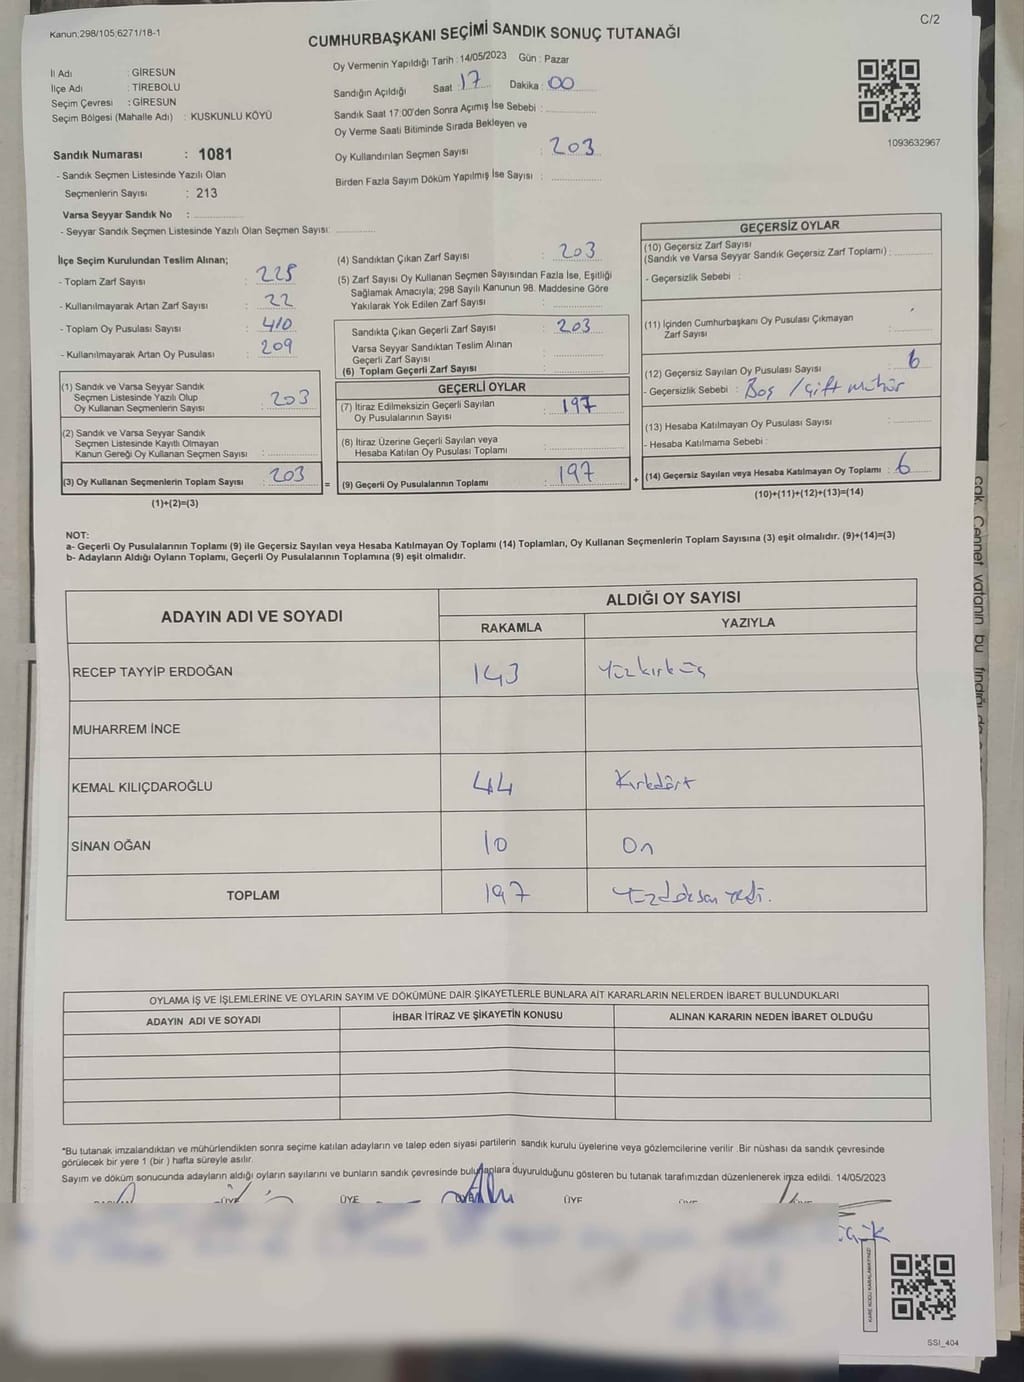 Kanun;298/105;6271/18-1
C/2
CUMHURBAŞKANI SEÇİMİ SANDIK SONUÇ TUTANAĞI
İl Adı : GİRESUN
İlçe Adı : TİREBOLU
Seçim Çevresi : GİRESUN
Seçim Bölgesi (Mahalle Adı) : KUSKUNLU KÖYÜ
Oy Vermenin Yapıldığı Tarih : 14/05/2023 Gün : Pazar
Sandığın Açıldığı Saat : 17 Dakika : 00
Sandık Saat 17:00'den Sonra Açımış İse Sebebi :
Oy Verme Saati Bitiminde Sırada Bekleyen ve
Oy Kullandırılan Seçmen Sayısı : 203
Birden Fazla Sayım Döküm Yapılmış İse Sayısı :
1093632967
Sandık Numarası : 1081
- Sandık Seçmen Listesinde Yazılı Olan
Seçmenlerin Sayısı : 213
Varsa Seyyar Sandık No :
- Seyyar Sandık Seçmen Listesinde Yazılı Olan Seçmen Sayısı:
İlçe Seçim Kurulundan Teslim Alınan;
- Toplam Zarf Sayısı : 225
- Kullanılmayarak Artan Zarf Sayısı : 22
- Toplam Oy Pusulası Sayısı : 410
- Kullanılmayarak Artan Oy Pusulası : 209
(1) Sandık ve Varsa Seyyar Sandık
Seçmen Listesinde Yazılı Olup
Oy Kullanan Seçmenlerin Sayısı : 203
(2) Sandık ve Varsa Seyyar Sandık
Seçmen Listesinde Kayıtlı Olmayan
Kanun Gereği Oy Kullanan Seçmen Sayısı :
(3) Oy Kullanan Seçmenlerin Toplam Sayısı : 203
(1)+(2)=(3)
(4) Sandıktan Çıkan Zarf Sayısı : 203
(5) Zarf Sayısı Oy Kullanan Seçmen Sayısından Fazla İse, Eşitliği
Sağlamak Amacıyla; 298 Sayılı Kanunun 98. Maddesine Göre
Yakılarak Yok Edilen Zarf Sayısı :
Sandıkta Çıkan Geçerli Zarf Sayısı : 203
Varsa Seyyar Sandıktan Teslim Alınan
Geçerli Zarf Sayısı :
(6) Toplam Geçerli Zarf Sayısı :
GEÇERLİ OYLAR
(7) İtiraz Edilmeksizin Geçerli Sayılan
Oy Pusulalarının Sayısı : 197
(8) İtiraz Üzerine Geçerli Sayılan veya
Hesaba Katılan Oy Pusulası Toplamı :
= (9) Geçerli Oy Pusulalarının Toplamı : 197
GEÇERSİZ OYLAR
(10) Geçersiz Zarf Sayısı
(Sandık ve Varsa Seyyar Sandık Geçersiz Zarf Toplamı) :
- Geçersizlik Sebebi :
(11) İçinden Cumhurbaşkanı Oy Pusulası Çıkmayan
Zarf Sayısı :
(12) Geçersiz Sayılan Oy Pusulası Sayısı : 6
- Geçersizlik Sebebi : Boş / Çift mühür
(13) Hesaba Katılmayan Oy Pusulası Sayısı :
- Hesaba Katılmama Sebebi :
+ (14) Geçersiz Sayılan veya Hesaba Katılmayan Oy Toplamı : 6
(10)+(11)+(12)+(13)=(14)
NOT:
a- Geçerli Oy Pusulalarının Toplamı (9) ile Geçersiz Sayılan veya Hesaba Katılmayan Oy Toplamı (14) Toplamları, Oy Kullanan Seçmenlerin Toplam Sayısına (3) eşit olmalıdır. (9)+(14)=(3)
b- Adayların Aldığı Oyların Toplamı, Geçerli Oy Pusulalarının Toplamına (9) eşit olmalıdır.
ADAYIN ADI VE SOYADI
ALDIĞI OY SAYISI
RAKAMLA YAZIYLA
RECEP TAYYİP ERDOĞAN 143 Yüzkırküç
MUHARREM İNCE
KEMAL KILIÇDAROĞLU 44 Kırkdört
SİNAN OĞAN 10 On
TOPLAM 197 Yüzdoksan yedi.
OYLAMA İŞ VE İŞLEMLERİNE VE OYLARIN SAYIM VE DÖKÜMÜNE DAİR ŞİKAYETLERLE BUNLARA AİT KARARLARIN NELERDEN İBARET BULUNDUKLARI
ADAYIN ADI VE SOYADI İHBAR İTİRAZ VE ŞİKAYETİN KONUSU ALINAN KARARIN NEDEN İBARET OLDUĞU
*Bu tutanak imzalandıktan ve mühürlendikten sonra seçime katılan adayların ve talep eden siyasi partilerin sandık kurulu üyelerine veya gözlemcilerine verilir. Bir nüshası da sandık çevresinde
görülecek bir yere 1 (bir) hafta süreyle asılır.
Sayım ve döküm sonucunda adayların aldığı oyların sayılarını ve bunların sandık çevresinde bulunanlara duyurulduğunu gösteren bu tutanak tarafımızdan düzenlenerek imza edildi. 14/05/2023
ÜYE ÜYE ÜYE
KARE KODU KARALAMAYINIZ!
SSİ_404
cak, Cennet vatanın bu